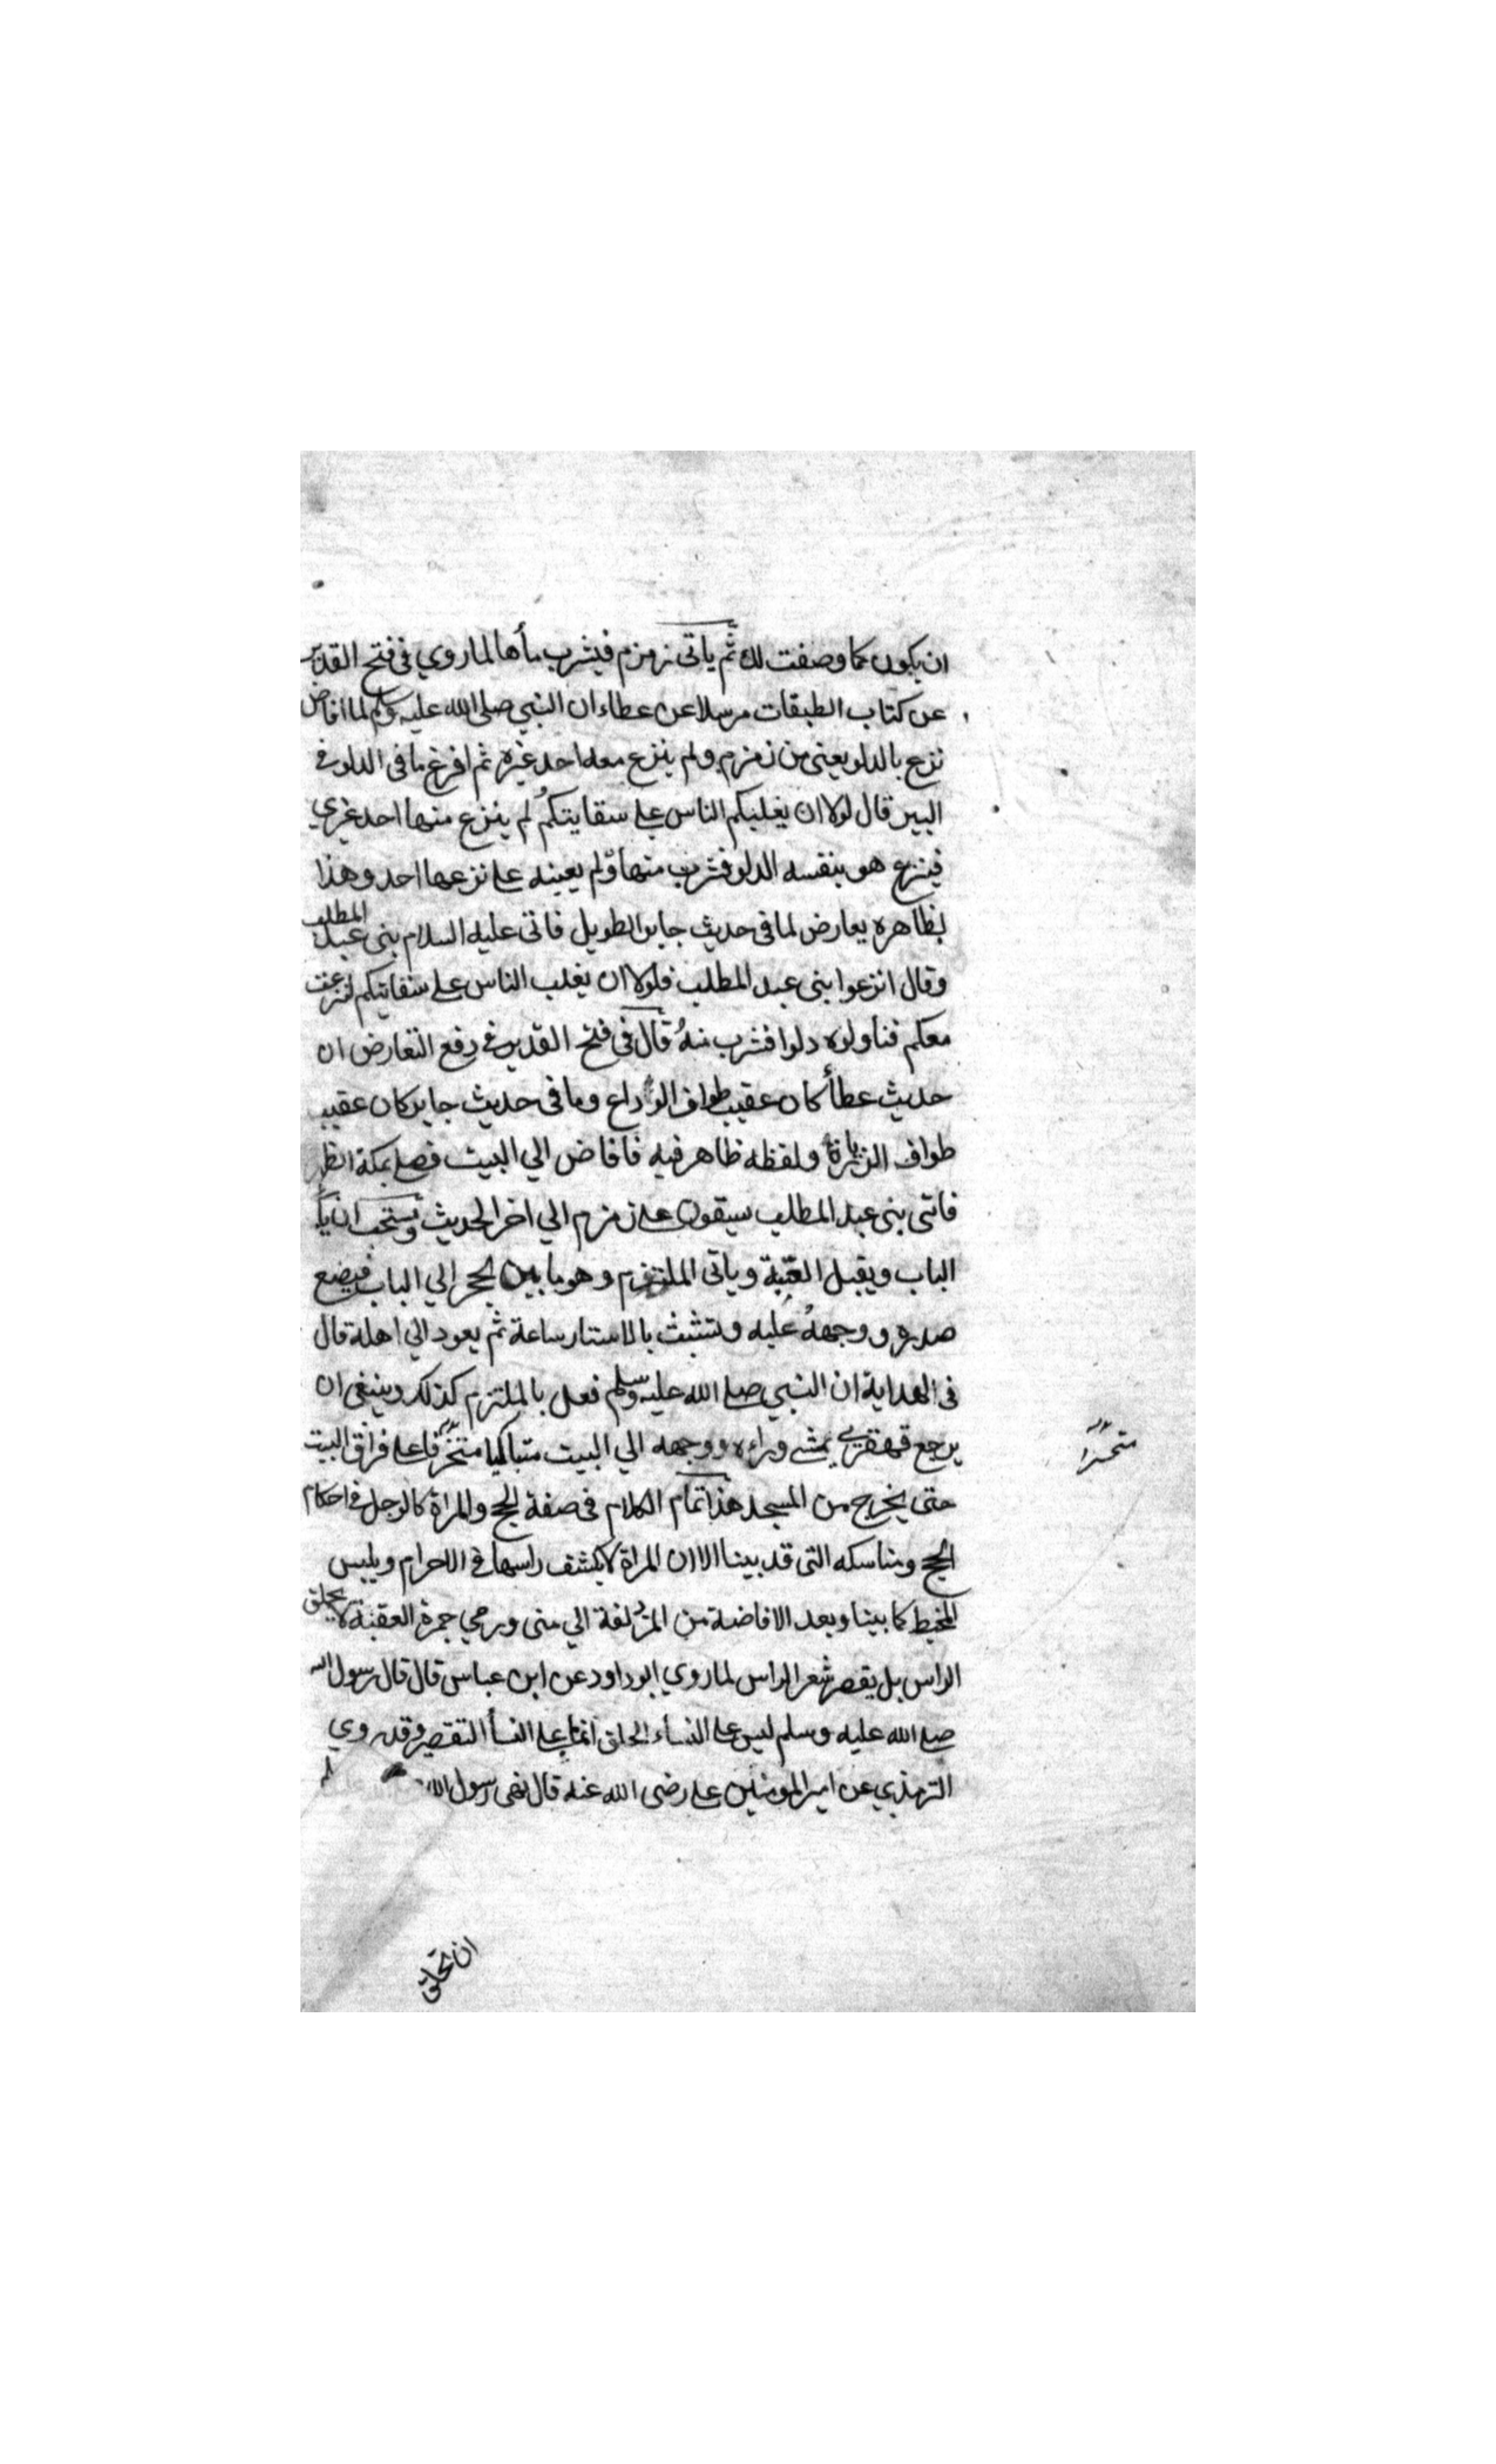 ان يكون كما وصفت لك ثم ياتى زمزم فيشرب مأها لما روي فى فتح القدير
عن كتاب الطبقات مرسلا عن عطاء ان النبي صلى الله عليه وسلم لما افاض
نزع بالدلو يعنى من زمزم ولم ينزع معه احد غيره ثم افرغ ما فى الدلو فى
البير قال لولا ان يغلبكم الناس على سقايتكم لم ينزع منها احد غيري
فينزع هو بنفسه الدلو فشرب منها ولم يعينه على نزعها احد وهذا
بظاهره يعارض لما فى حديث جابر الطويل فاتى عليه السلام بنى عبد المطلب
وقال انزعوا بنى عبد المطلب فلولا ان يغلب الناس على سقايتكم لنزعت
معكم فناولوه دلوا فشرب منهُ قال فى فتح القدير فى دفع التعارض ان
حديث عطأ كان عقيب طواف الوداع وما فى حديث جابر كان عقيب
طواف الزيارة ولفظه ظاهر فيه فافاض الي البيت فصلى بمكة الظهر
فاتى بنى عبد المطلب سيقون على زمزم الي اخر الحديث ويستحب ان ياتى
الباب ويقبل العتبة وياتى الملتزم وهو ما بين الحجر الي الباب فيضع
صدره ووجههُ عليه ويتشبث بالاستار ساعة ثم يعود الي اهله قال
فى الهداية ان النبي صلى الله عليه وسلم فعل بالملتزم كذلك وينبغى ان
يرجع قهقرى يمشي وراءه ووجهه الي البيت متباكيا على فراق البيت
متحسرا
حتى يخرج من المسجد هذا تمام الكلام فى صفة الحج والمراة كالرجل فى احكام
الحج ومناسكه التى قد بينا الا ان المراة لا يكشف راسها فى الاحرام ويلبس
المخيط كما بينا وبعد الافاضة من المزدلفة الي منى ورمي جمرة العقبة لا يحلق
الراس بل يقصر شعر الراس لما روي ابو داود عن ابن عباس قال قال رسول الله
صلى الله عليه وسلم ليس على النساء الحلق انما على النسأ التقصير وقد روي
الترمذي عن امير المومنين على رضى الله عنه قال نهى رسول الله
ان تحلق